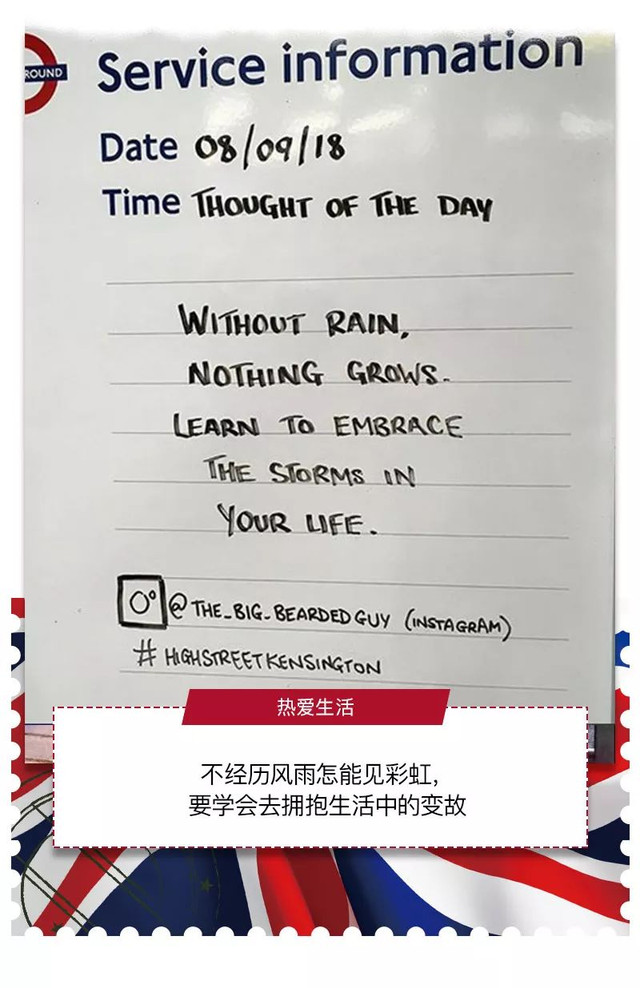 ROUND
Service information
Date 08/09/18
Time THOUGHT OF THE DAY
WITHOUT RAIN,
NOTHING GROWS.
LEARN TO EMBRACE
THE STORMS IN
YOUR LIFE.
@THE_BIG_BEARDEDGUY (INSTAGRAM)
# HIGHSTREETKENSINGTON
热爱生活
不经历风雨怎能见彩虹,
要学会去拥抱生活中的变故